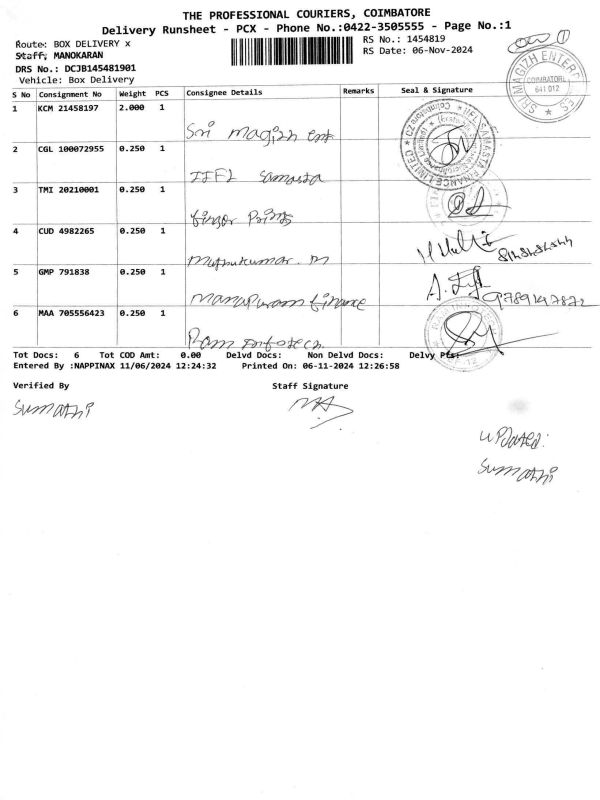 THE PROFESSIONAL COURIERS, COIMBATORE
Delivery Runsheet - PCX - Phone No.:0422-3505555 - Page No.:1
Route: BOX DELIVERY x
RS No.: 1454819
Staff: MANOKARAN
RS Date: 06-Nov-2024
DRS No.: DCJB145481901
Vehicle: Box Delivery
SRI MAGIZH ENTERPRISES
COIMBATORE
641 012
S No Consignment No Weight PCS Consignee Details Remarks Seal & Signature
1 KCM 21458197 2.000 1
Sri Magizh ent
2 CGL 100072955 0.250 1
IIFL Samasta
IIFL SAMASTA FINANCE LIMITED
3 TMI 20210001 0.250 1
finger Prints
4 CUD 4982265 0.250 1
Muthukumar. M
5 GMP 791838 0.250 1
Manapuram finance
9789147872
6 MAA 705556423 0.250 1
Ram Infotech
Tot Docs: 6 Tot COD Amt: 0.00 Delvd Docs: Non Delvd Docs: Delvy Pts:
Entered By :NAPPINAX 11/06/2024 12:24:32 Printed On: 06-11-2024 12:26:58
Verified By Staff Signature
Sumathi
updated:
Sumathi